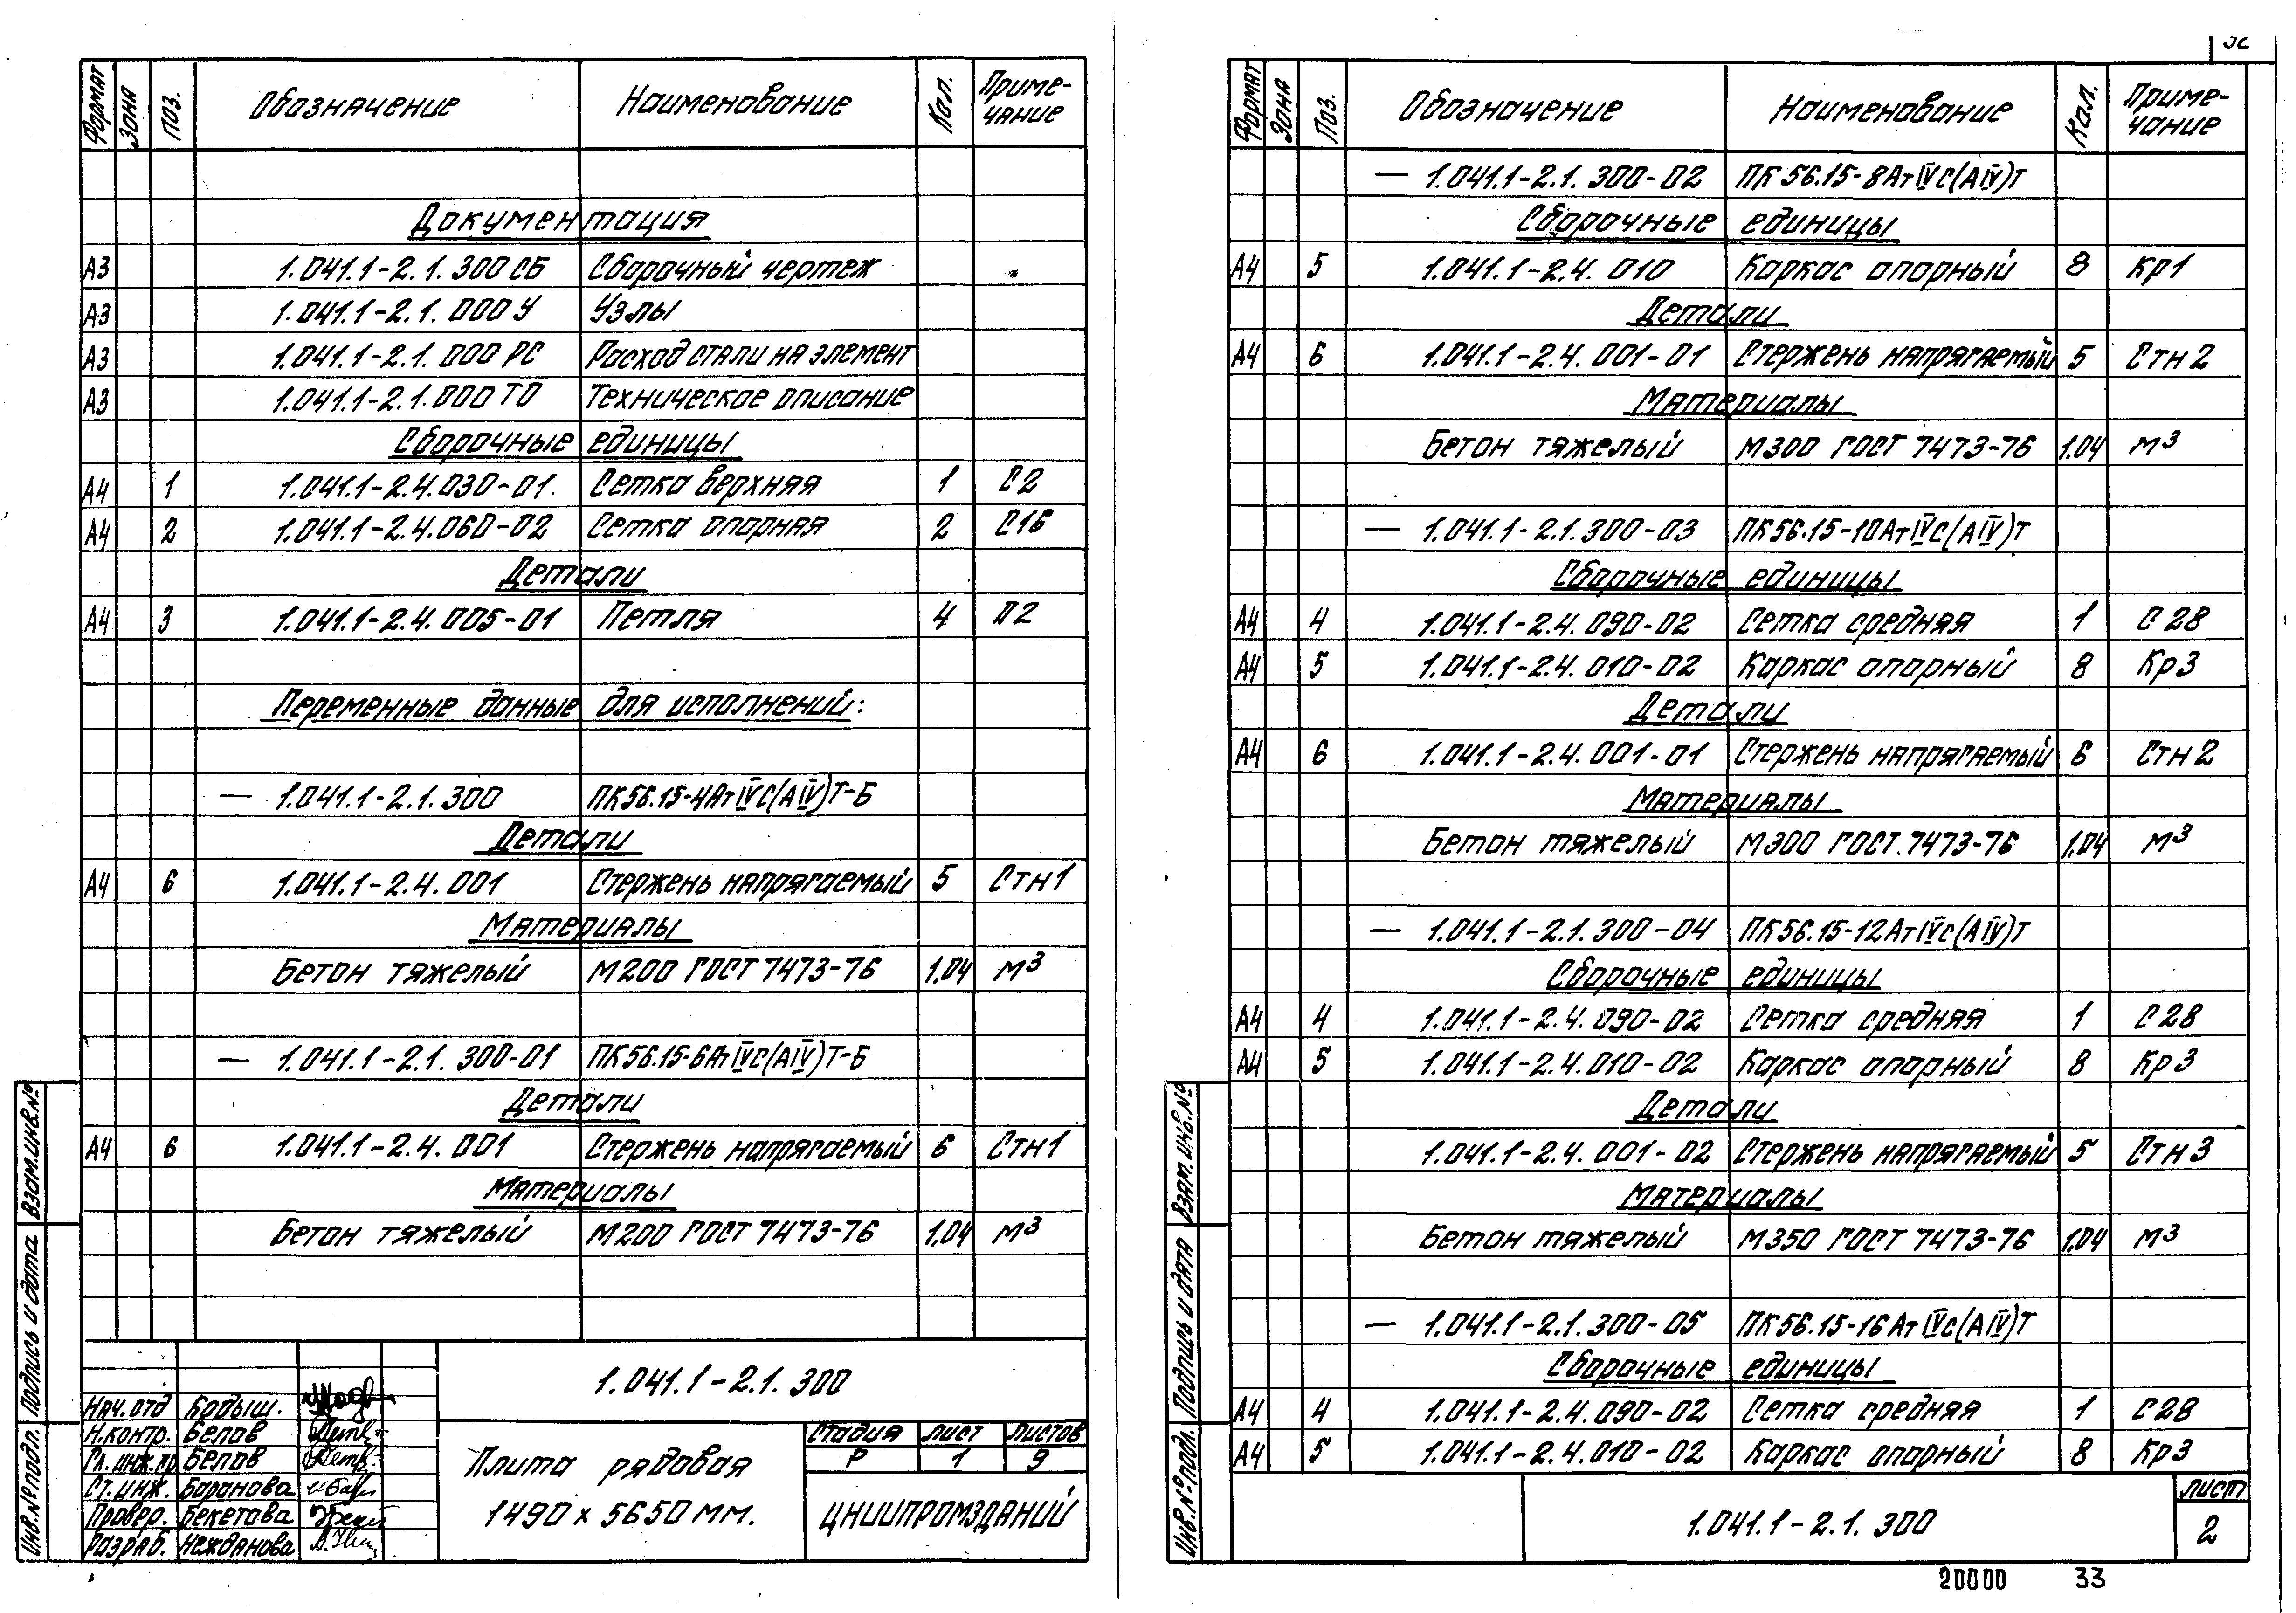 Формат Зона Поз. Обозначение Наименование Кол. Приме-
чание
Документация
А3 1.041.1-2.1.300СБ Сборочный чертеж
А3 1.041.1-2.1.000У Узлы
А3 1.041.1-2.1.000РС Расход стали на элемент
А3 1.041.1-2.1.000ТО Техническое описание
Сборочные единицы
А4 1 1.041.1-2.4.030-01. Сетка верхняя 1 С2
А4 2 1.041.1-2.4.060-02 Сетка опорная 2 С16
Детали
А4 3 1.041.1-2.4.005-01 Петля 4 П2
Переменные данные для исполнений:
— 1.041.1-2.1.300 ПК56.15-4АтIVС(АIV)Т-Б
Детали
А4 6 1.041.1-2.4.001 Стержень напрягаемый 5 Стн1
Материалы
Бетон тяжелый М200 ГОСТ 7473-76 1.04 м³
— 1.041.1-2.1.300-01 ПК56.15-6АтIVС(АIV)Т-Б
Детали
А4 6 1.041.1-2.4.001 Стержень напрягаемый 6 Стн1
Материалы
Бетон тяжелый М200 ГОСТ 7473-76 1.04 м³
Взам.инв.№
Подпись и дата
Инв.№ подл.
1.041.1-2.1.300
Нач.отд Кодыш.
Н.контр. Белов
Гл.инж.пр Белов
Ст.инж. Баранова
Провер. Бекетова
Разраб. Нежданова
Плита рядовая
1490 х 5650 мм.
Стадия Лист Листов
Р 1 9
ЦНИИПРОМЗДАНИЙ
32
Формат Зона Поз. Обозначение Наименование Кол. Приме-
чание
— 1.041.1-2.1.300-02 ПК56.15-8АтIVС(АIV)Т
Сборочные единицы
А4 5 1.041.1-2.4.010 Каркас опорный 8 Кр1
Детали
А4 6 1.041.1-2.4.001-01 Стержень напрягаемый 5 Стн2
Материалы
Бетон тяжелый М300 ГОСТ 7473-76 1.04 м³
— 1.041.1-2.1.300-03 ПК56.15-10АтIVС(АIV)Т
Сборочные единицы
А4 4 1.041.1-2.4.090-02 Сетка средняя 1 С28
А4 5 1.041.1-2.4.010-02 Каркас опорный 8 Кр3
Детали
А4 6 1.041.1-2.4.001-01 Стержень напрягаемый 6 Стн2
Материалы
Бетон тяжелый М300 ГОСТ.7473-76 1.04 м³
— 1.041.1-2.1.300-04 ПК56.15-12АтIVС(АIV)Т
Сборочные единицы
А4 4 1.041.1-2.4.090-02 Сетка средняя 1 С28
А4 5 1.041.1-2.4.010-02 Каркас опорный 8 Кр3
Детали
1.041.1-2.4.001-02 Стержень напрягаемый 5 Стн3
Материалы
Бетон тяжелый М350 ГОСТ 7473-76 1.04 м³
— 1.041.1-2.1.300-05 ПК56.15-16АтIVС(АIV)Т
Сборочные единицы
А4 4 1.041.1-2.4.090-02 Сетка средняя 1 С28
А4 5 1.041.1-2.4.010-02 Каркас опорный 8 Кр3
Взам.инв.№
Подпись и дата
Инв.№ подл.
1.041.1-2.1.300
Лист
2
20000 33